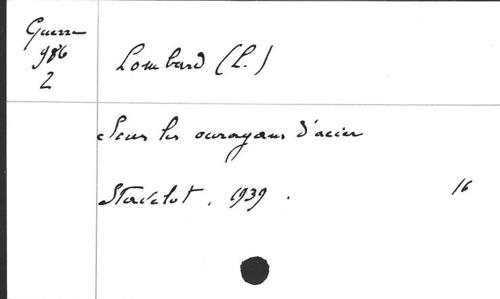 Guerre
986
2
Lombard (L.)
Sous les ouragans d'acier
Stavelot, 1939.
16